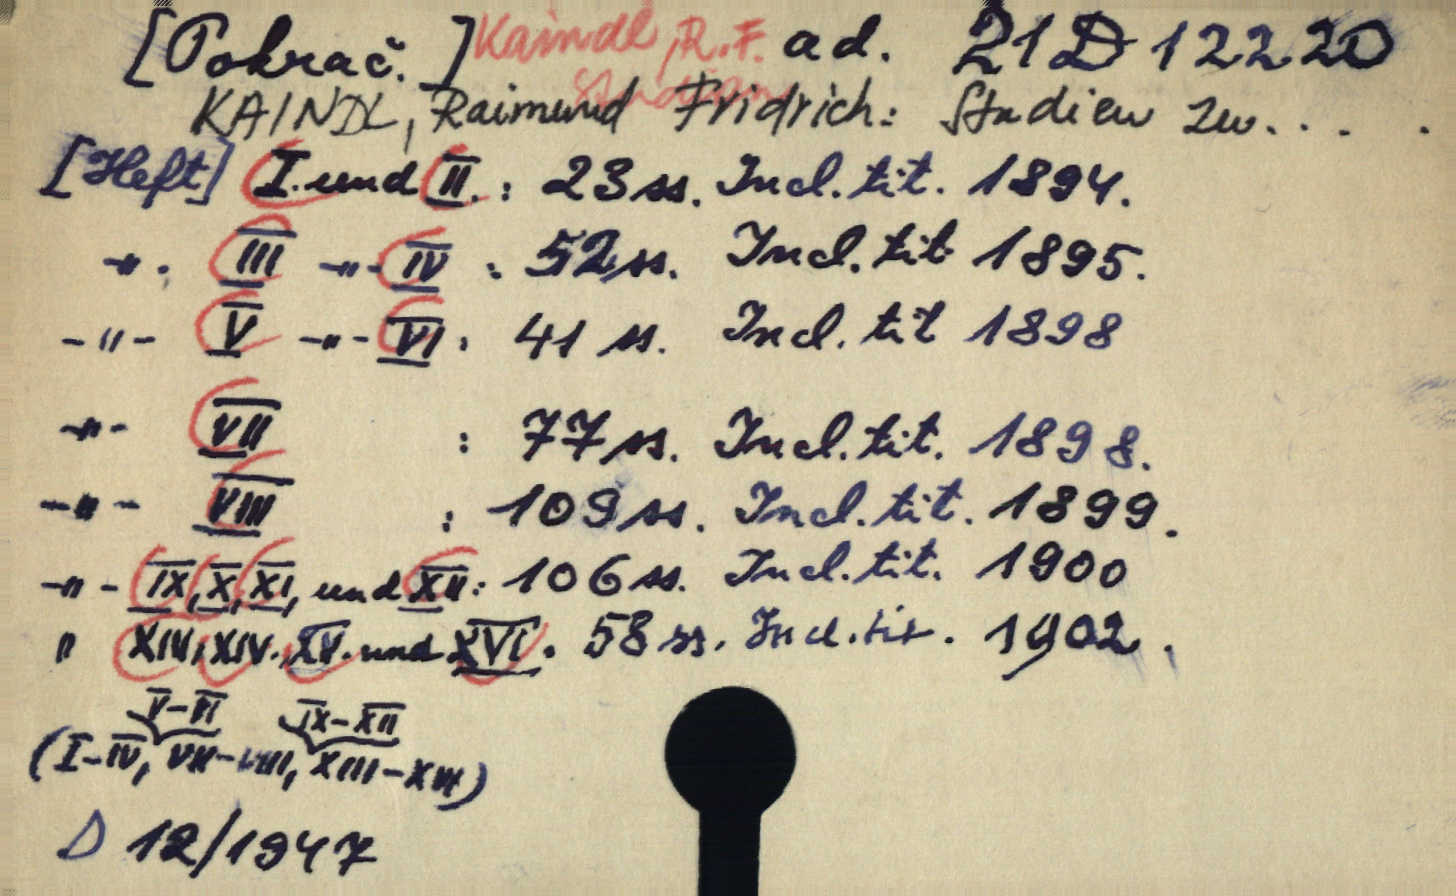 [Pokrač.] Kaindl, R.F. ad. 21 D 12220
Studien
KAINDL, Raimund Fridrich: Studien zu. . . .
[Heft] I. und II. : 23 ss. Incl. tit. 1894.
-"-. III -"- IV : 52 ss. Incl. tit 1895.
-"- V -"- VI : 41 ss. Incl. tit 1898
-"- VII : 77 ss. Incl. tit. 1898.
-"- VIII : 109 ss. Incl. tit. 1899.
-"- IX, X, XI, und XII : 106 ss. Incl. tit. 1900
" XIV, XIV., XV. und XVI. 58 ss. Incl. tit. 1902.
V-VI IX-XII
(I-IV, VII-VIII, XIII-XVI)
D 12/1947